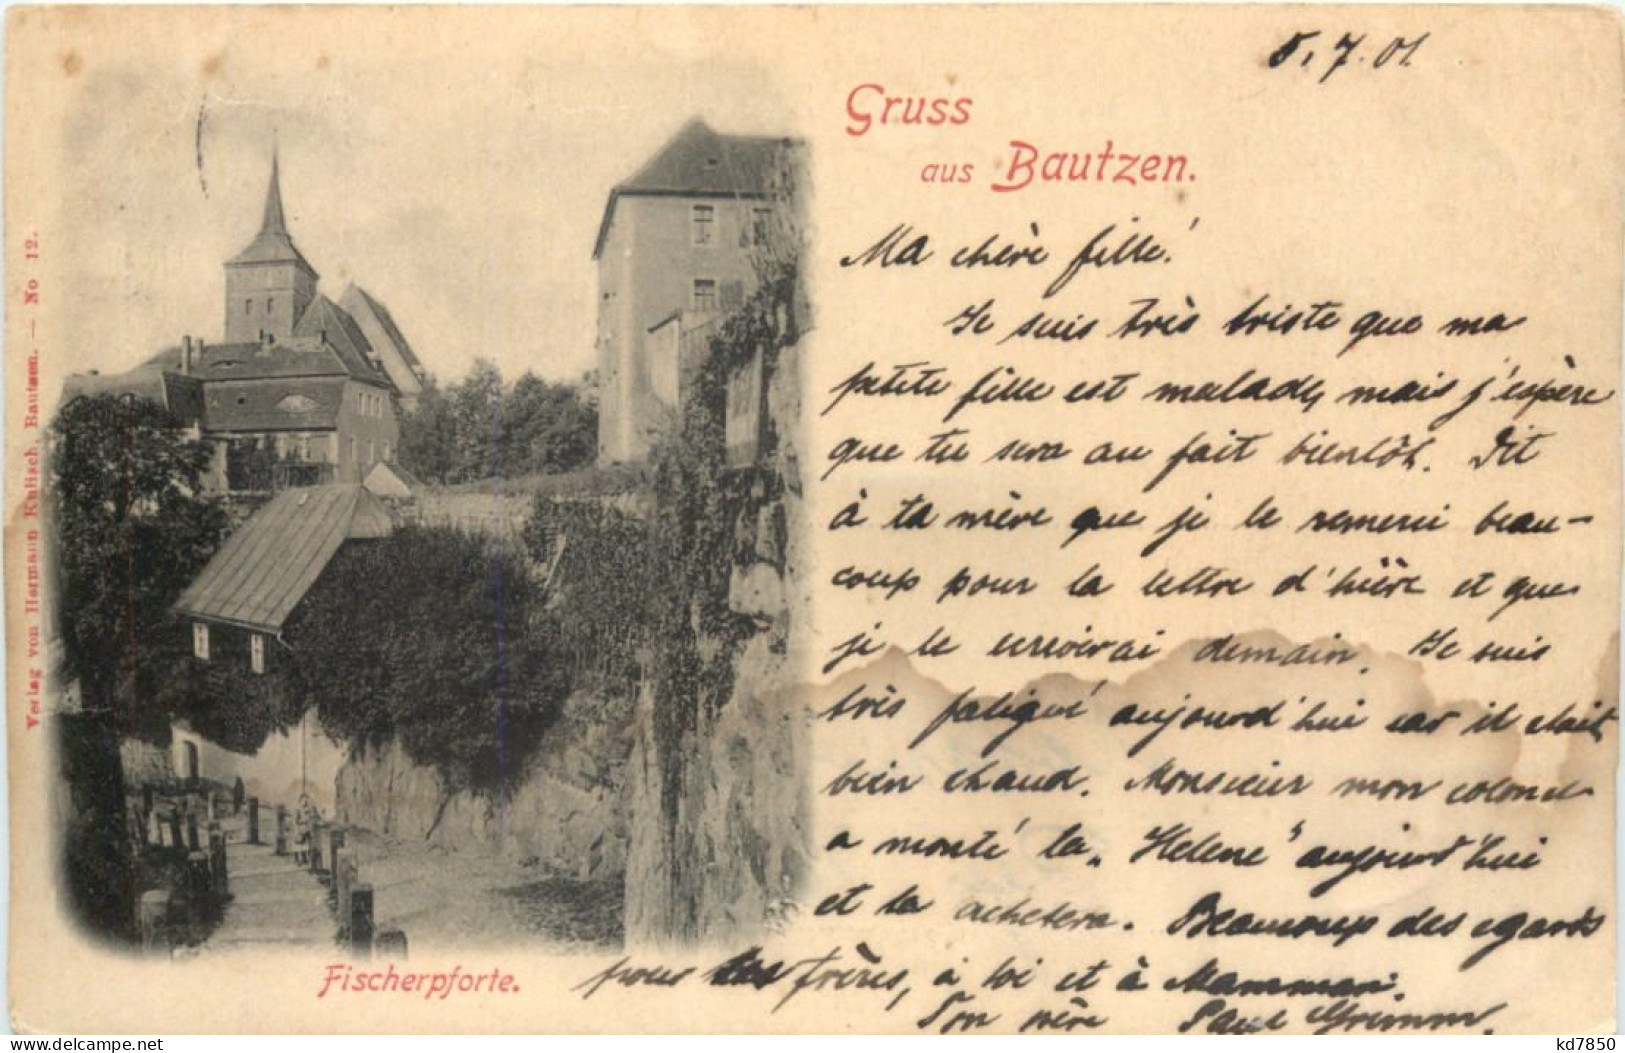 5. 7. 01.
Gruss
aus Bautzen.
Ma chère fille!
Je suis très triste que ma
petite fille est malade, mais j'espère
que tu sera au fait bientôt. Dit
à ta mère que je le remerci beau-
coup pour la lettre d'hière et que
je le enverrai demain. Je suis
très fatigué aujourd'hui car il était
bien chaud. Monsieur mon colonel
a monté la „Helene" aujourd'hui
et la achetera. Beaucoup des egards
pour tes frères, à toi et à Mamman.
Ton père Paul Grimm.
Fischerpforte.
Verlag von Hermann Kulisch, Bautzen. — No 12.
kd7850